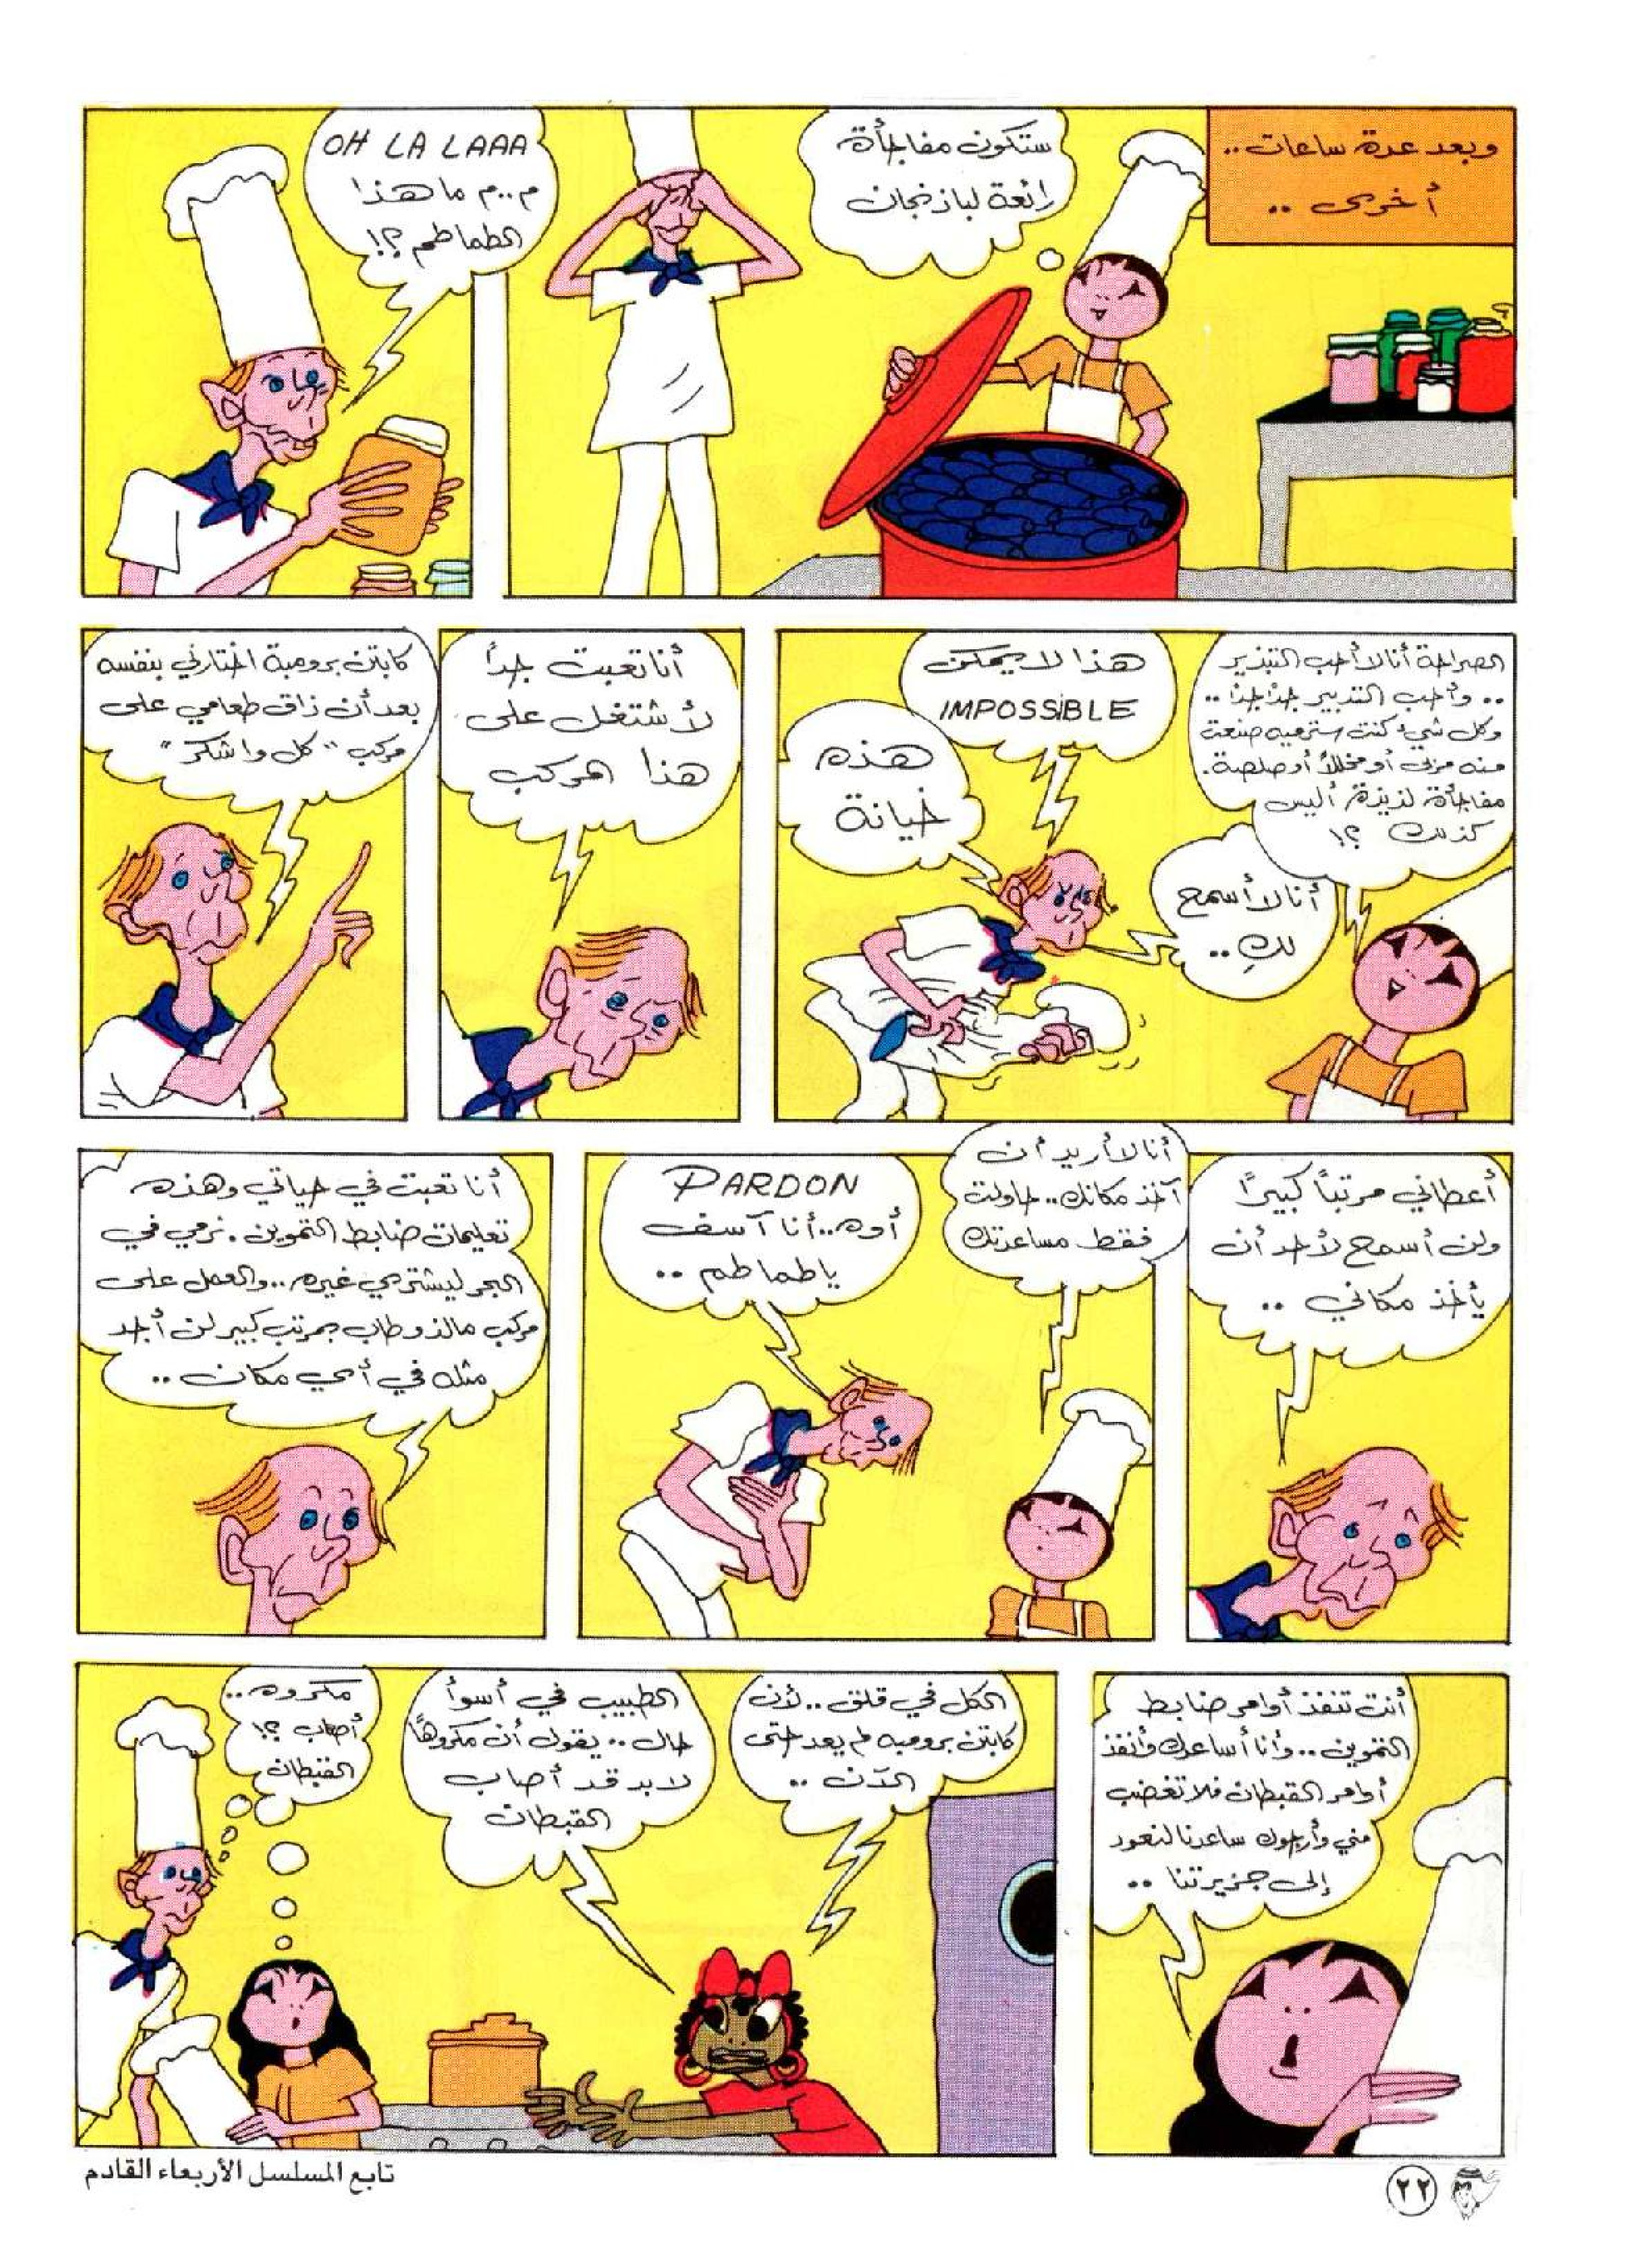 وبعد عدة ساعات..
أخرى ..
ستكون مفاجأة
رائعة لباذنجان
OH LA LAAA
م..م ما هذا
الطماطم ؟!
الصراحة أنا لا أحب التبذير
.. وأحب التدبير جداً جداً ..
وكل شيء كنت سترميه صنعت
منه مربى أو مخللاً أو صلصة.
مفاجأة لذيذة أليس
كذلك ؟!
هذا لا يمكن
IMPOSSIBLE
هذه
خيانة
أنا لا أسمح
لكِ ..
أنا تعبت جداً
لأشتغل على
هذا المركب
كابتن برومبة اختارني بنفسه
بعد أن ذاق طعامي على
مركب "كل واشكر"
أعطاني مرتباً كبيراً
ولن أسمح لأحد أن
يأخذ مكاني ..
أنا لا أريد أن
آخذ مكانك.. حاولت
فقط مساعدتك
PARDON
أوه..أنا آسف
يا طماطم ..
أنا تعبت في حياتي وهذه
تعليمات ضابط التموين . نرمي في
البحر ليشتري غيره ..والعمل على
مركب مالذ وطاب بمرتب كبير لن أجد
مثله في أي مكان ..
أنت تنفذ أوامر ضابط
التموين ..وأنا أساعدك وأنفذ
أوامر القبطان فلا تغضب
مني وأرجوك ساعدنا لنعود
إلى جزيرتنا ..
الكل في قلق .. لأن
كابتن برومبه لم يعد حتى
الآن ..
الطبيب في أسوأ
حال .. يقول أن مكروهاً
لابد قد أصاب
القبطان
مكروه..
أصاب ؟!
القبطان
تابع المسلسل الأربعاء القادم
٢٢